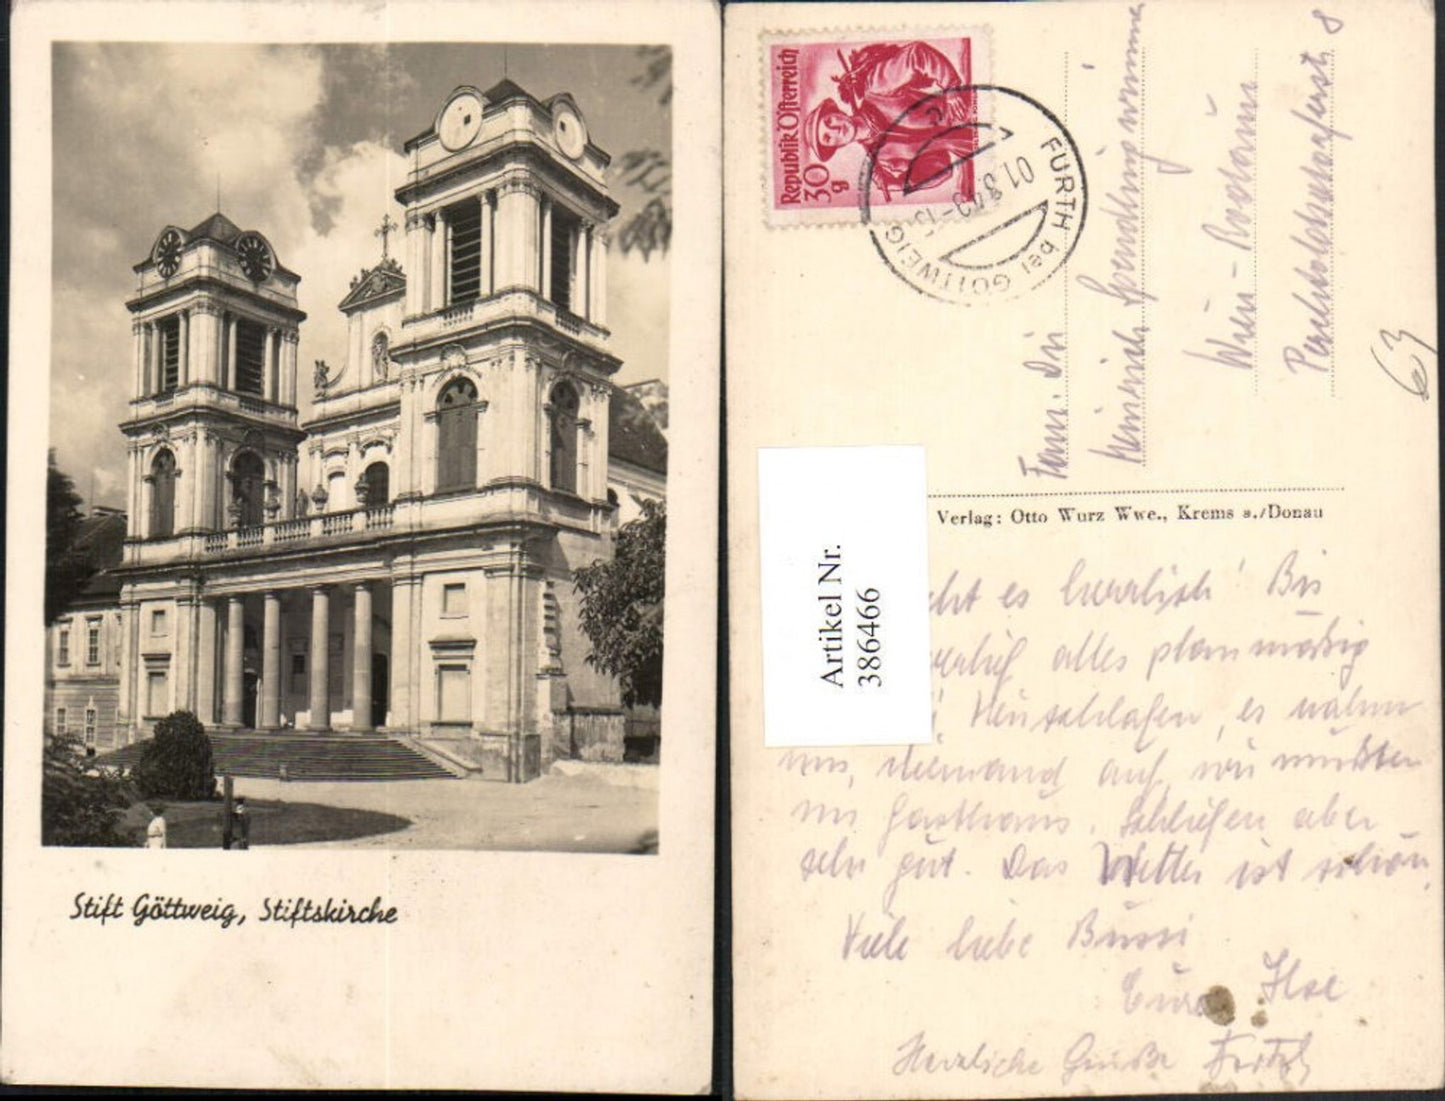 Stift Göttweig, Stiftskirche
Republik Österreich
30
g
FURTH bei GÖTTWEIG
01.8.49-15
Fam. Dir
Heinrich
Wien - Rodaun
8
63
Artikel Nr.
386466
Verlag: Otto Wurz Wwe., Krems a./Donau
es herrlich! Bis
alles planmäßig
Heuschlafen, es nahm
uns niemand auf, wir mußten
im Gasthaus. Schliefen aber
sehr gut. Das Wetter ist schön.
Viele liebe Bussi
Eure Ilse
Herzliche Grüße